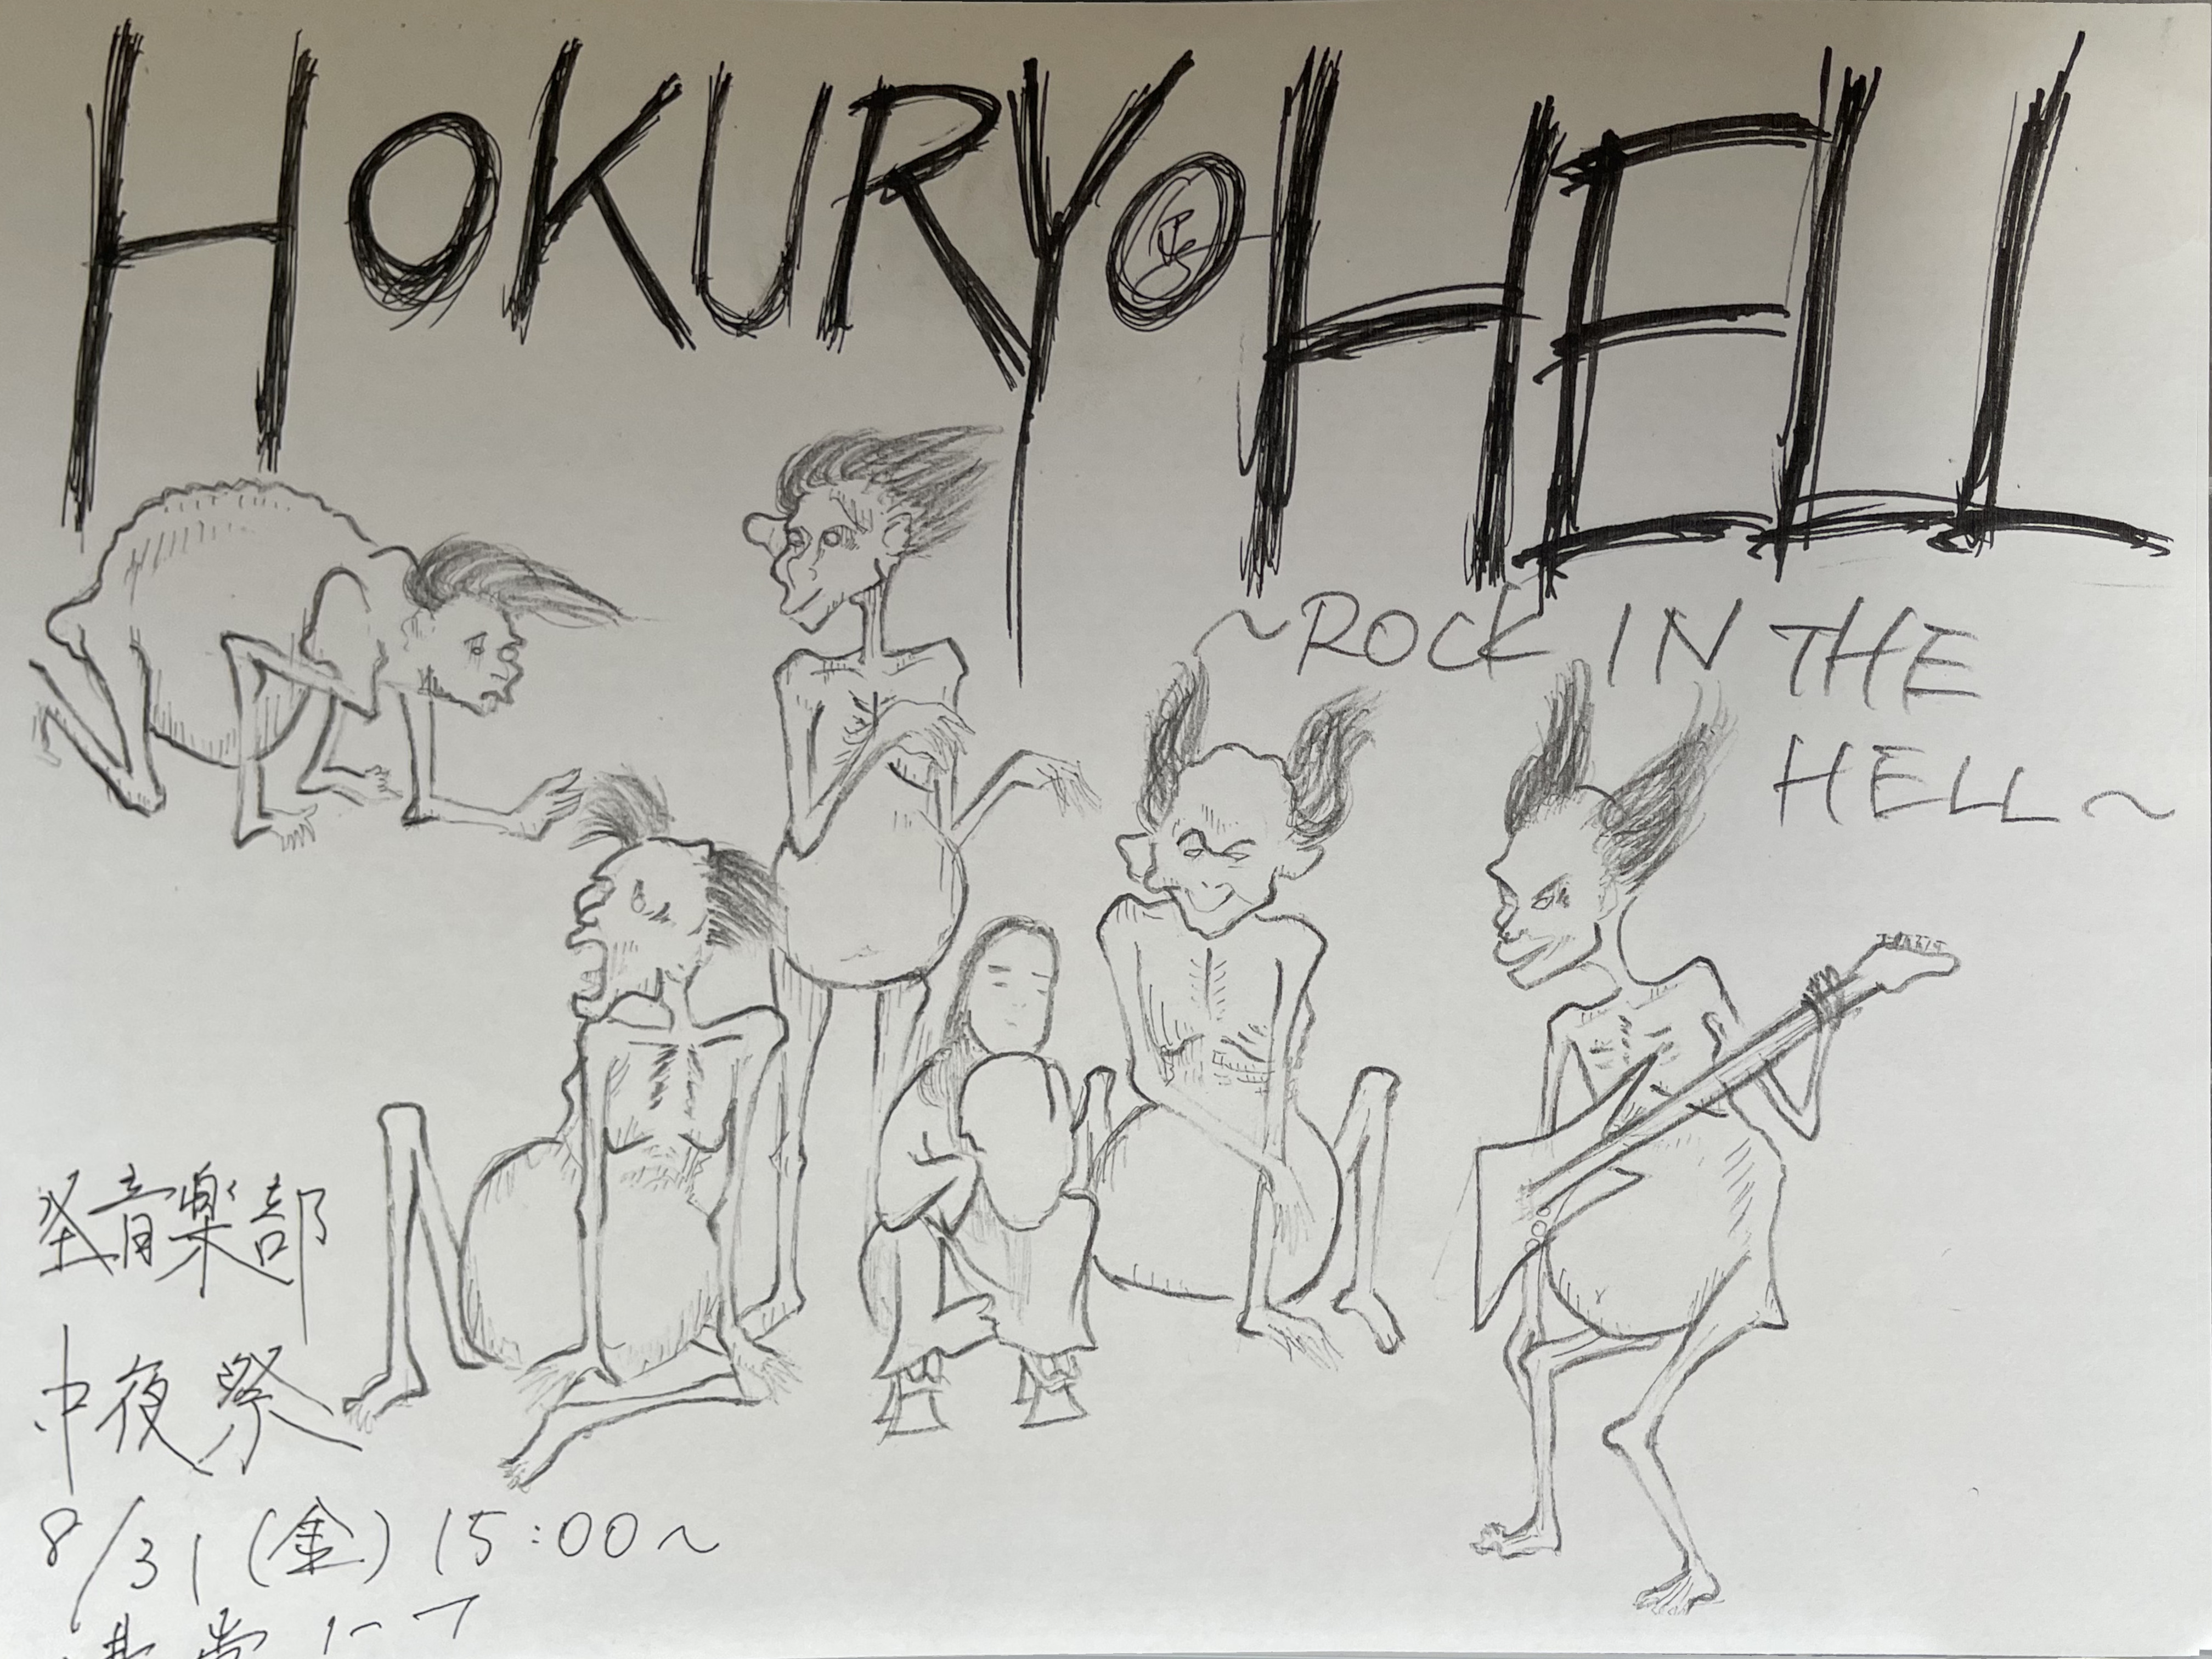 HOKURYO HELL
~ROCK IN THE
HELL~
軽音楽部
中夜祭
8/31(金) 15:00~